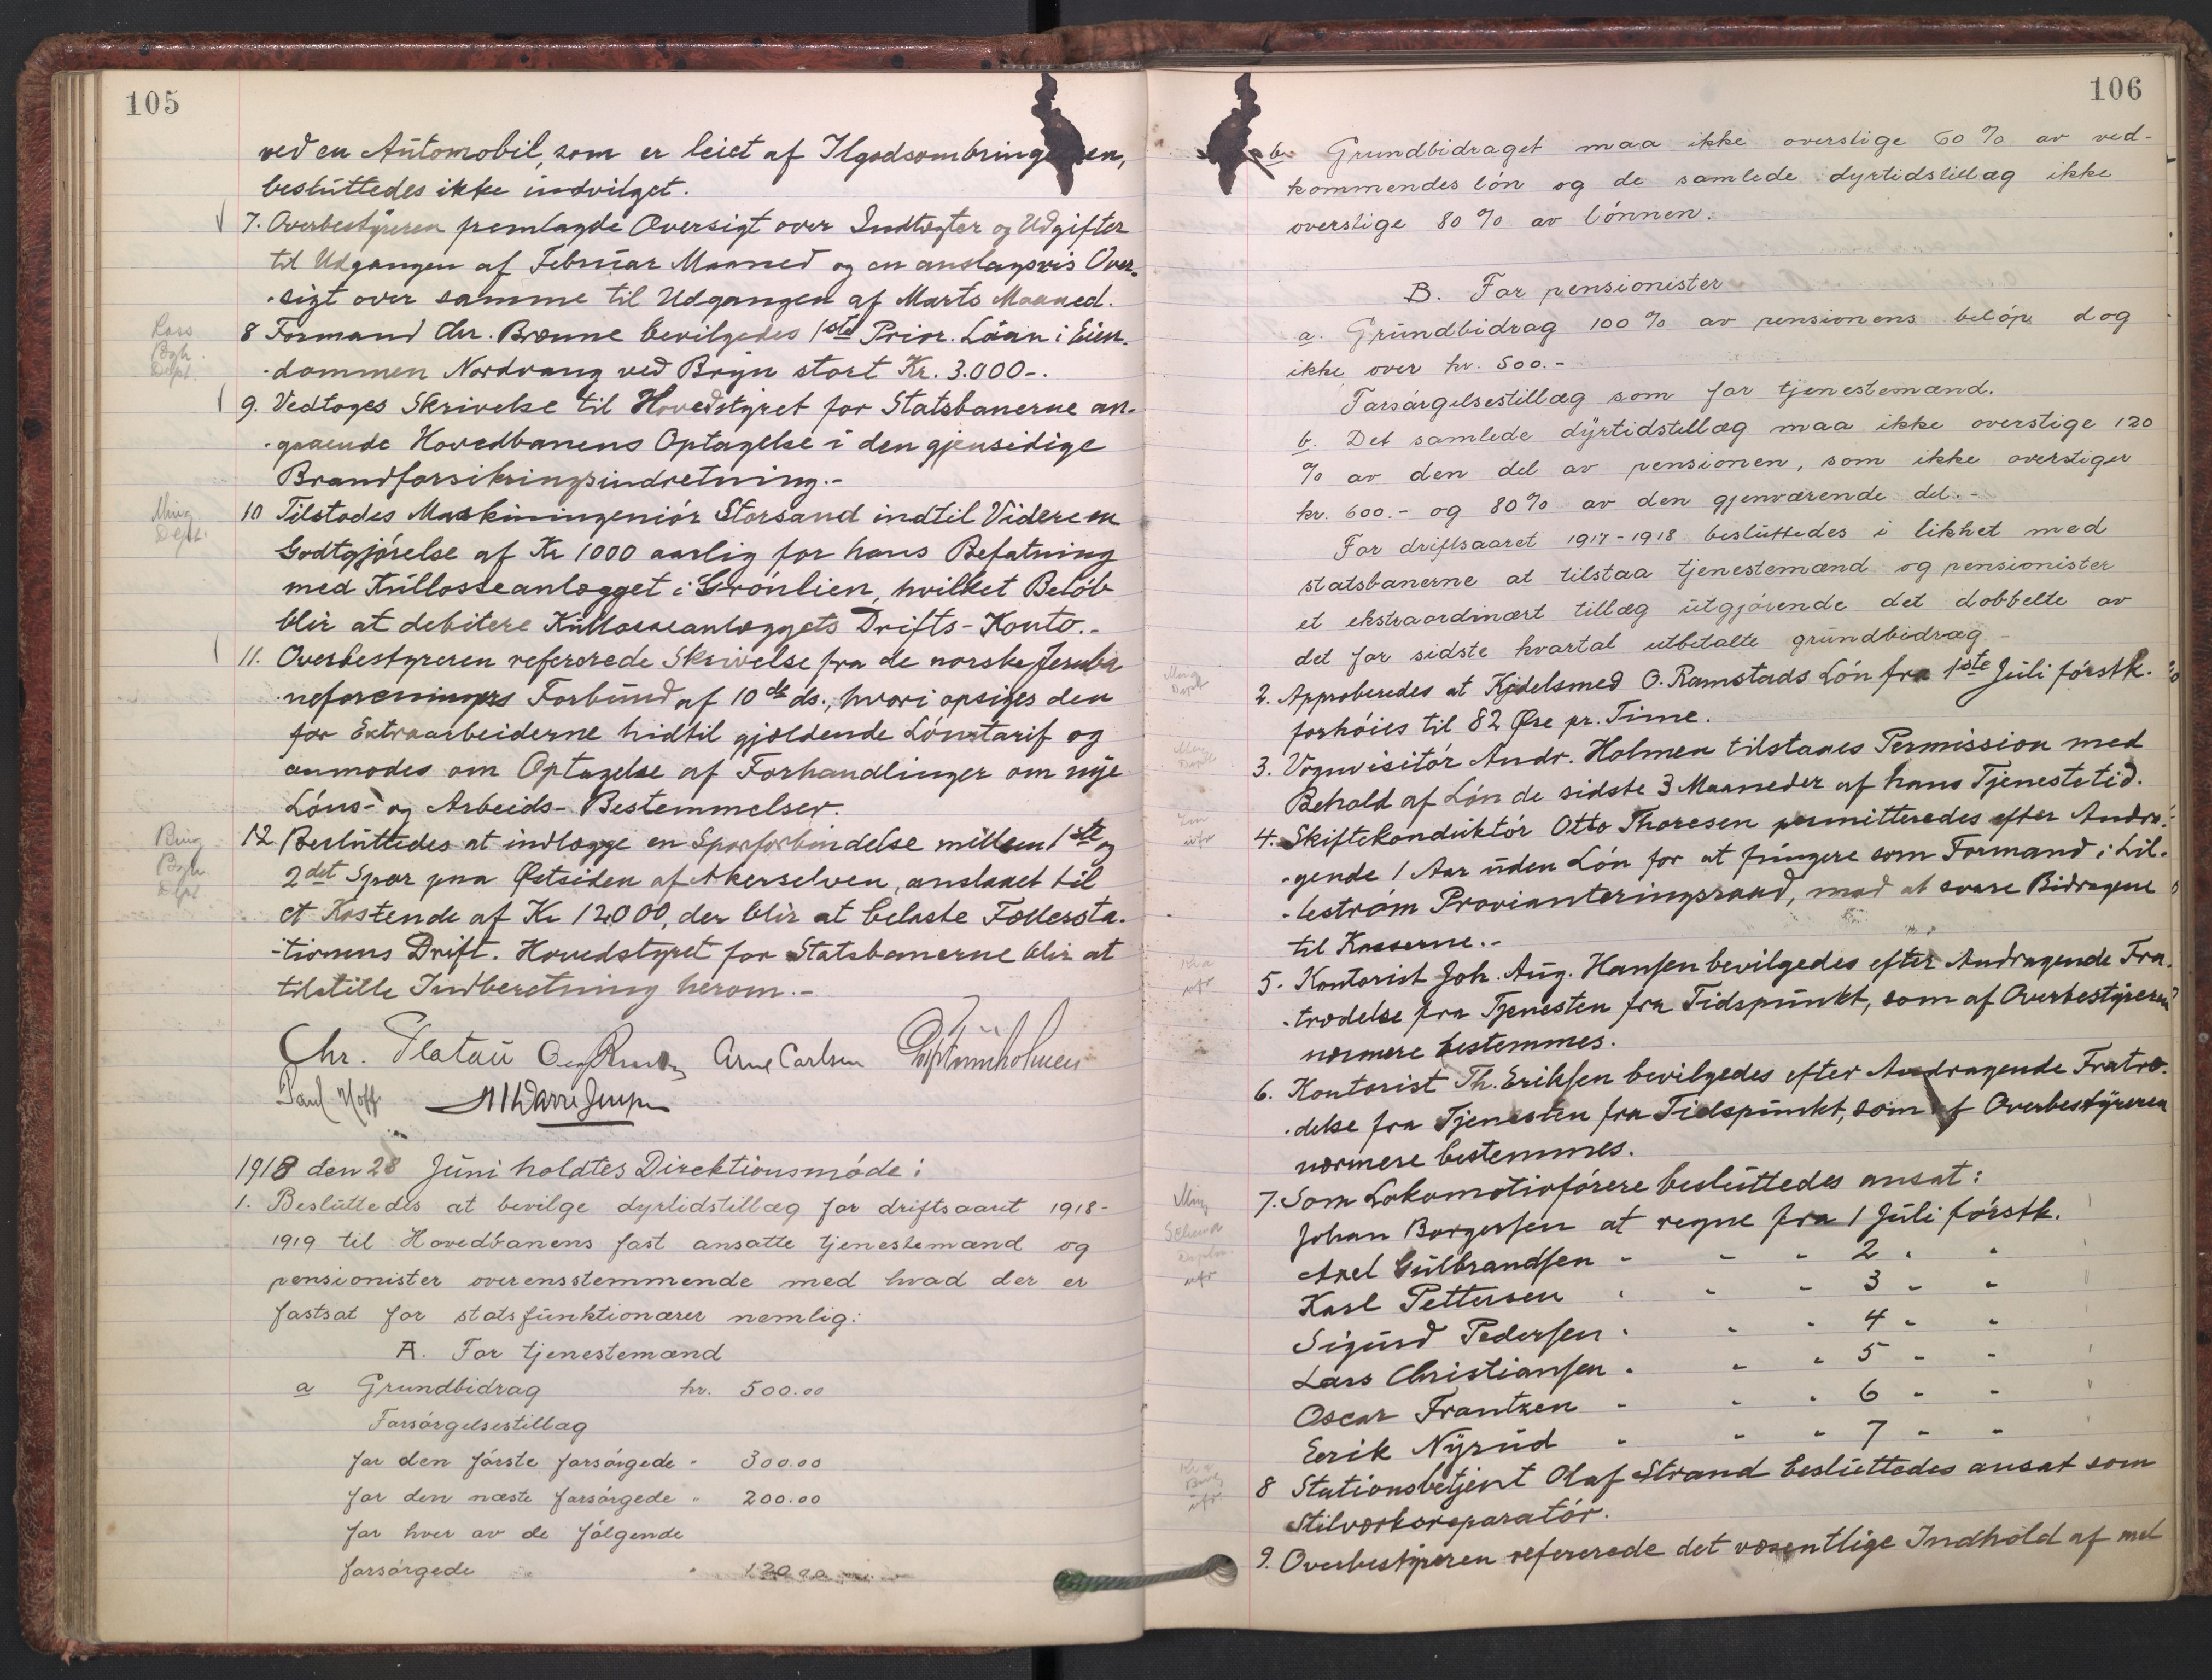 105
ved en Automobil, som er leiet af Ilgodsombringelsen,
besluttedes ikke indvilget.
7. Overbestyreren fremlagde Oversigt over Indtægter og Udgifter
til Udgangen af Februar Maaned og en anslagsvis Over-
-sigt over samme til Udgangen af Marts Maaned.
8 Formand Chr. Brænne bevilgedes 1ste Prior. Laan i Eien-
-dommen Nordvang ved Bryn stort Kr. 3.000-.
9. Vedtoges Skrivelse til Hovedstyret for Statsbanerne an-
-gaaende Hovedbanens Optagelse i den gjensidige
Brandforsikringsindretning.-
10 Tilstodes Maskiningeniör Storsand indtil Videre en
Godtgjörelse af Kr 1000 aarlig for hans Befatning
med Kullosseanlægget i Grönlien, hvilket Belöb
blir at debitere Kullosseanlæggets Drifts-Konto.-
11. Overbestyreren refererede Skrivelse fra de norske Jernba
-neforeningers Forbund af 10de ds., hvori opsiges den
for Extraarbeiderne hidtil gjældende Lönstarif og
anmodes om Optagelse af Forhandlinger om nye
Löns- og Arbeids-Bestemmelser.
12 Besluttedes at indlægge en Sporforbindelse mellem 1ste og
2det Spor paa Østsiden af Akerselven, anslaaet til
et Kostende af Kr 12000, der blir at belaste Fællessta-
-tionens Drift. Hovedstyret for Statsbanerne blir at
tilstille Indberetning herom.-
Chr. Platou Arne Carlsen
Paul Hoff
1918 den 28 Juni holdtes Direktionsmöde:
1. Besluttedes at bevilge dyrtidstillæg for driftsaaret 1918-
1919 til Hovedbanens fast ansatte tjenestemænd og
pensionister overensstemmende med hvad der er
fastsat for statsfunktionærer nemlig:
A. For tjenestemænd
a Grundbidrag kr. 500.00
Forsörgelsestillæg
for den förste forsörgede " 300.00
for den næste forsörgede " 200.00
for hver av de fölgende
forsörgede " 120.00
106
b. Grundbidraget maa ikke overstige 60 % av ved-
kommendes lön og de samlede dyrtidstillæg ikke
overstige 80 % av lönnen.
B. For pensionister
a. Grundbidrag 100 % av pensionens belöp dog
ikke over kr. 500.-
Forsörgelsestillæg som for tjenestemænd.
b. Det samlede dyrtidstillæg maa ikke overstige 120
% av den del av pensionen, som ikke overstiger
kr. 600.- og 80 % av den gjenværende del.-
For driftsaaret 1917-1918 besluttedes i likhet med
statsbanerne at tilstaa tjenestemænd og pensionister
et ekstraordinært tillæg utgjörende det dobbelte av
det for sidste kvartal utbetalte grundbidrag-
2. Approberedes at Kjedelsmed O. Ramstads Lön fra 1ste Juli förstk.
forhöies til 82 Øre pr. Time.
3. Vognvisitör Andr. Holmen tilstaaes Permission med
Behold af Lön de sidste 3 Maaneder af hans Tjenestetid.
4. Skiftekonduktör Otto Thoresen permitteredes efter Andra-
-gende 1 Aar uden Lön for at fungere som Formand i Lil-
-leström Provianteringsraad, mod at svare Bidragene
til Kasserne.-
5. Kontorist Joh. Aug. Hansen bevilgedes efter Andragende Fra-
-trædelse fra Tjenesten fra Tidspunkt, som af Overbestyreren
nærmere bestemmes.
6. Kontorist Th. Eriksen bevilgedes efter Andragende Fratræ-
-delse fra Tjenesten fra Tidspunkt, som af Overbestyreren
nærmere bestemmes.
7. Som Lokomotivförere besluttedes ansat:
Johan Borgersen at regne fra 1 Juli förstk.
Axel Gulbrandsen " " " 2 " "
Karl Pettersen " " " 3 " "
Sigurd Pedersen " " " 4 " "
Lars Christiansen " " " 5 " "
Oscar Frantzen " " " 6 " "
Eerik Nyrud " " " 7 " "
8 Stationsbetjent Olaf Strand besluttedes ansat som
Stilværksreparatör.
9. Overbestyreren refererede det væsentlige Indhold af mel